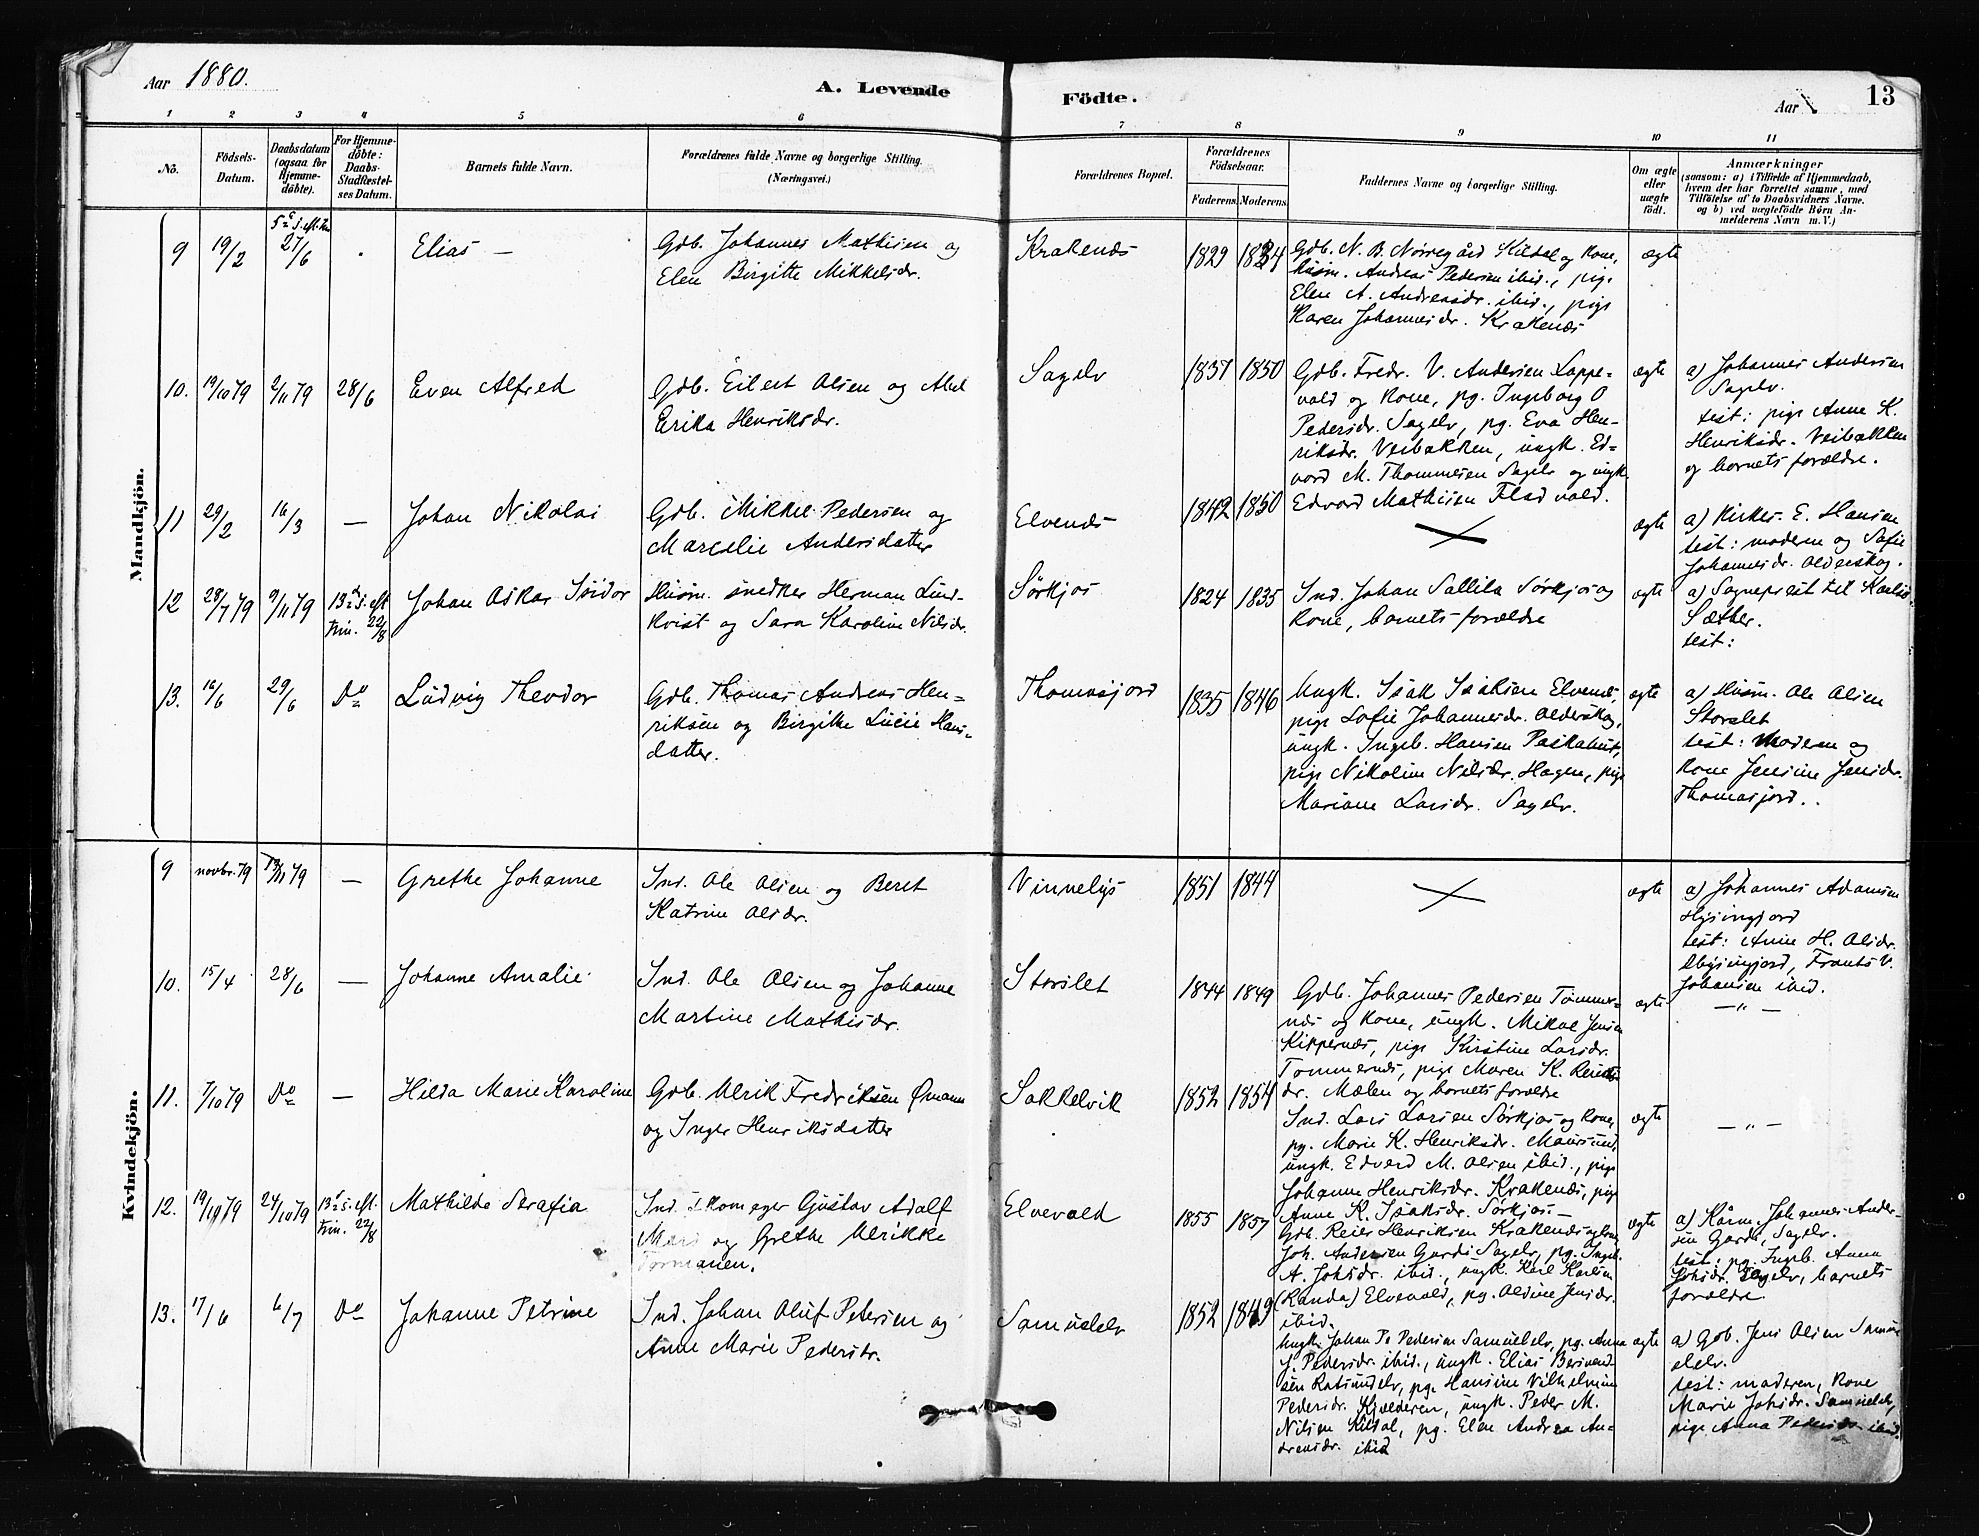 Aar 1880.
A. Levende
Födte.
Aar
13
1 2 3 4 5 6 7 8 9 10 11
No.
Födsels-
Datum.
Daabsdatum
(ogsaa for
Hjemme-
döbte).
For Hjemme-
döbte:
Daabs-
Stadfæstel-
ses Datum.
Barnets fulde Navn.
Forældrenes fulde Navne og borgerlige Stilling.
(Næringsvei.)
Forældrenes Bopæl.
Forældrenes
Födselsaar.
Faderens. Moderens.
Faddernes Navne og borgerlige Stilling.
Om ægte
eller
uægte
födt.
Anmærkninger
(saasom: a) i Tilfælde af Hjemmedaab,
hvem der har forrettet samme, med
Tilföielse af to Daabsvidners Navne.
og b) ved uægtefödte Börn An-
melderens Navn m. V.)
Mandkjön.
9 19/2 27/6 Elias —
Gdb. Johannes Mathisen og
Elen Birgitte Mikkelsdr.
Krakenæs 1829 1834
Gdb. N. B. Nørregård Kildal og Kone,
Husm. Andreas Pedersen ibid., pige
Elen A. Andreasdr. ibid., pige
Karen Johannesdr. Krakenæs
ægte
10. 19/10 79 2/11 79 28/6 Even Alfred
Gdb. Eilert Olsen og Abel
Erika Henriksdr.
Sagelv 1837 1850
Gdb. Fredr. V. Andersen Lappe-
vold og Kone, pg. Ingeborg O
Pedersdr. Sagelv, pg. Eva Hen-
riksdr. Veibakken, ungk. Ed-
vard M. Thommesen Sagelv og ungk.
Edvard Mathisen Flad vold.
ægte
a) Johannes Andersen
Sagelv.
test: pige Anne K.
Henriksdr. Veibakken
og barnets forældre.
11 29/2 16/3 — Johan Nikolai
Gdb. Mikkel Pedersen og
Marselie Andersdatter
Elvenæs 1842 1850
ægte
a) Kirkes. E. Hansen
test: moderen og Sofie
Johannesdr. Olderskog.
12 28/7 79 9/11 79 13de s. eft
trin. 22/8
Johan Oskar Isidor
Husm. snedker Herman Lund-
kvist og Sara Karoline Nilsdr.
Sørkjos 1824 1835
Ind. Johan Sallita Sørkjos og
Kone, barnets forældre
ægte
a) Sogneprest til Karlsø
Sæther.
test:
13. 16/6 29/6 Do Ludvig Theodor
Gdb. Thomas Andreas Hen-
riksen og Birgitte Lucie Hans-
datter.
Thomasjord 1835 1846
Ungk. Isak Isaksen Elvenæs,
pige Sofie Johannesdr. Olderskog,
ungk. Ingeb. Hansen Paskahus,
pige Nikoline Nilsdr. Hagen, pige
Mariane Larsdr. Sagelv.
ægte
a) Husm. Ole Olsen
Storslet
test: Moderen og
Kone Jensine Jensdr.
Thomasjord.
Kvindekjön.
9 novbr. 79 — Grethe Johanne
Ind. Ole Olsen og Beret
Katrine Olsdr.
Vinnelys 1851 1844
ægte
a) Johannes Adamsen
test: Anne H. Olsdr.
Frants V.
Johansen ibid.
10. 15/4 28/6 — Johanne Amalie
Ind. Ole Olsen og Johanne
Martine Mathisdr.
Storslet 1844 1849
Gdb. Johannes Pedersen Tømmer-
næs og Kone, ungk. Mikal Jensen
Kippernæs, pige Kirstine Larsdr.
Tømmernæs, pige Maren K.
dr. Mælen og barnets forældre
ægte — " —
11. 7/10 79 Do — Hilda Marie Karoline
Gdb. Ulrik Fredriksen Ømann
og Inger Henriksdatter
Sakkelvik 1852 1854
Ind. Lars Larsen Sørkjos og Kone,
pg. Marie K. Henriksdr. Maursund,
ungk. Edvard M. Olsen ibid., pige
Johanne Henriksdr. Krakenæs, pige
Anne K. Isaksdr. Sørkjos —
ægte — " —
12. 19/10 79 24/10 79 13de s. eft.
trin. 22/8
Mathilde Serafia
Ind. Skomager Gustav Adolf
og Grethe Ulrikke
Elvevold 1855 1857
Gdb. Reier Henriksen Krakenæs og Kone
Joh. Andersen Gardi Sagelv, pg. Ingeb.
A. Johsdr. ibid., ungk. Karl Karlsen
(Randa) Elvevold, pg. Oldine Jensdr.
ibid.
ægte
a) Kårm. Johannes Ander-
sen Gardi, Sagelv.
test: pg. Ingeb. Anna
Johsdr. Sagelv, barnets
forældre
13. 17/6 6/7 Do Johanne Petrine
Ind. Johan Oluf Petersen og
Anne Marie Pedersdr.
Samuelelv 1852 1849
Ungk. Johan P. Pedersen Samuelelv, pg. Anna
L. Pedersdr. ibid., ungk. Elias Bersvend-
sen Rotsundelv, pg. Hansine Vilhelmine
Pedersdr. Kjælderen, ungk. Peder M.
Nilsen Kildal, pg. Elen Andrea An-
dreasdr. ibid
ægte
a) Gdb. Jens Olsen Samu-
elelv.
test: moderen, Kone
Marie Johsdr. Samuelelv,
pige Anna Pedersdr. ibid.